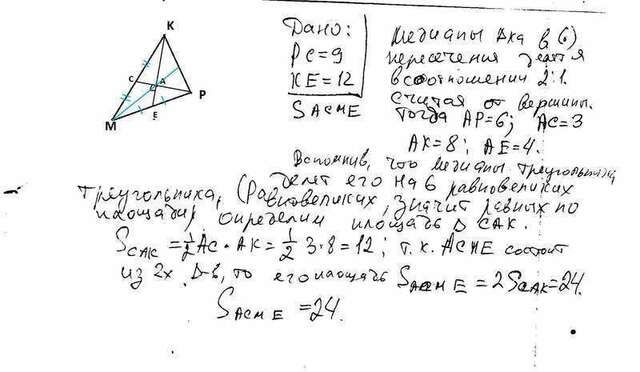 K
C
A
P
M
E
Дано:
PC=9
KE=12
SACME
Медианы Δка в (·)
пересечения делятся
в соотношении 2:1.
считая от вершины.
Тогда AP=6; AC=3
AK=8; AE=4.
Вспомнив, что медианы треугольника
делят его на 6 равновеликих
треугольника, (равновеликих, значит равных по
площади) определим площадь Δ CAK.
SCAK = 1/2 AC · AK = 1/2 3·8=12; т.к. ACME состоит
из 2х Δ-в, то его площадь SACME = 2SCAK=24.
SACME =24.